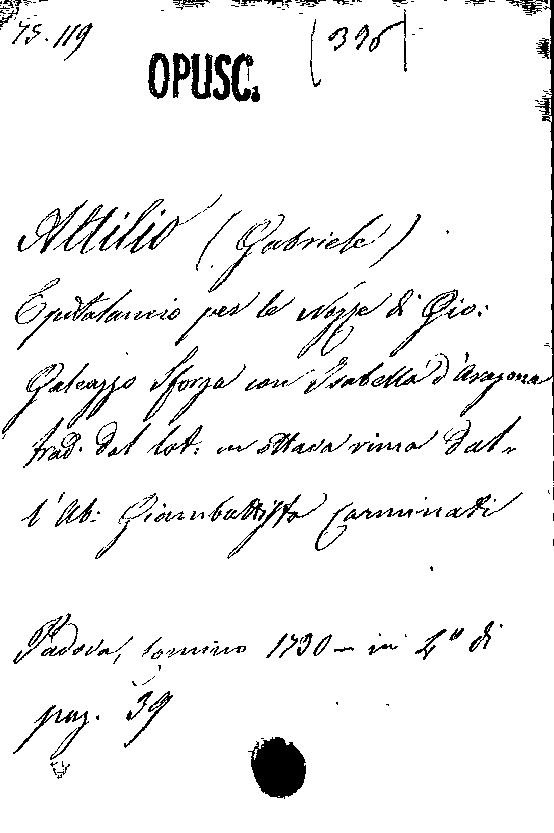 75.119 (396)
OPUSC.
Attilio (Gabriele)
Epitalamio per le Nozze di Gio:
Galeazzo Sforza con Isabella d'Aragona
trad. dal lat: in ottava rima dal-
l'Ab: Giambattista Carminati
Padova, Comino 1730 - in 4º di
pag. 39